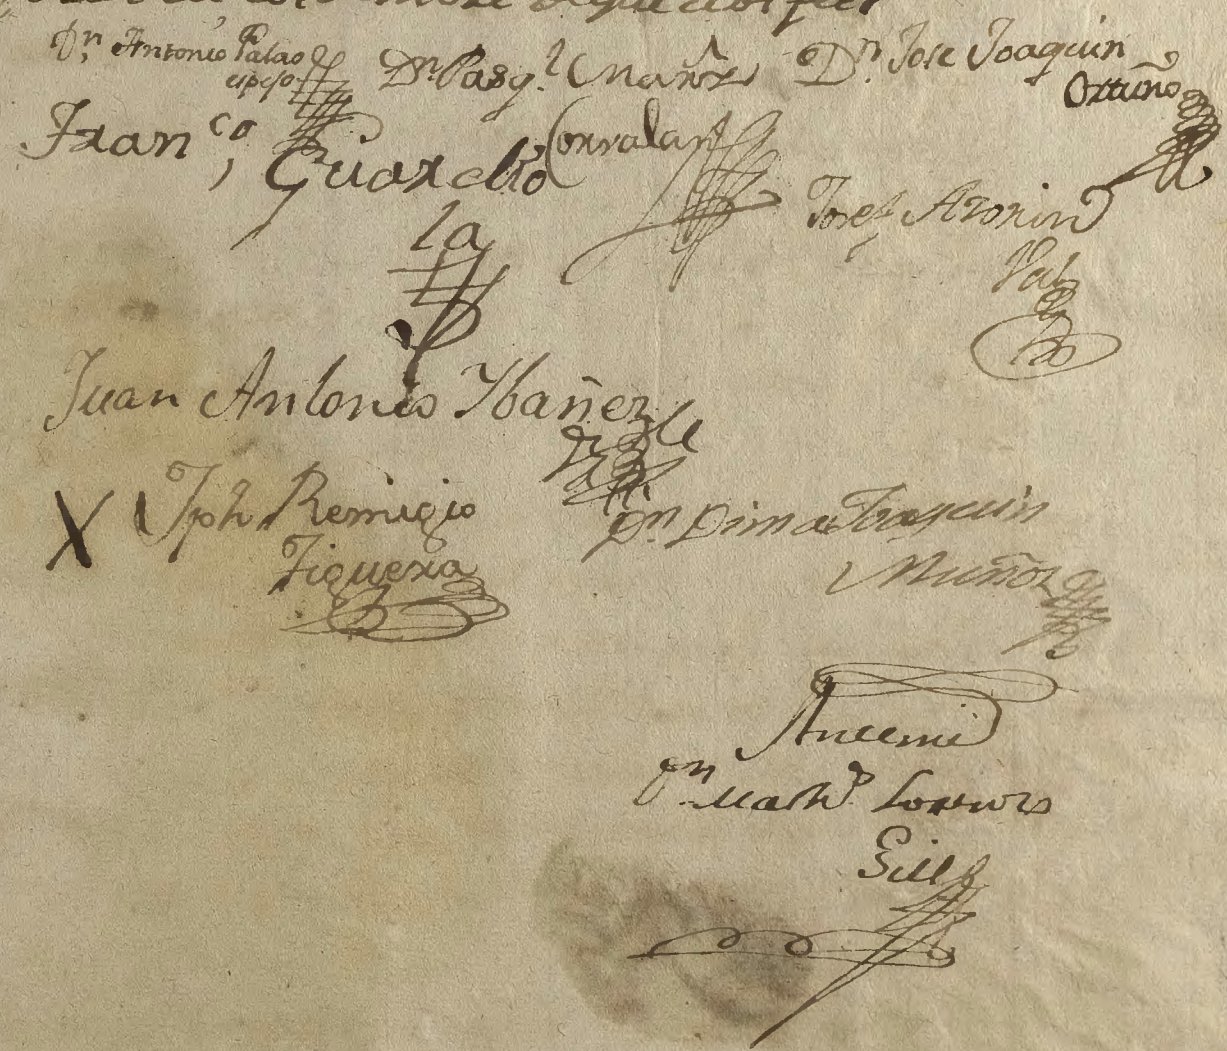 Dn. Antonio Palao
Dn. Pasql. Muñoz Dn. Jose Joaquin
Ortuño
Franco, Guardio
Corvalan
la
Josef Azorin
Juan Antonio Ybañez
X Jph Remigio
Figuera
Dn. Dima Joaquin
Muñoz
Antemi
Dn. Math.o
Gill